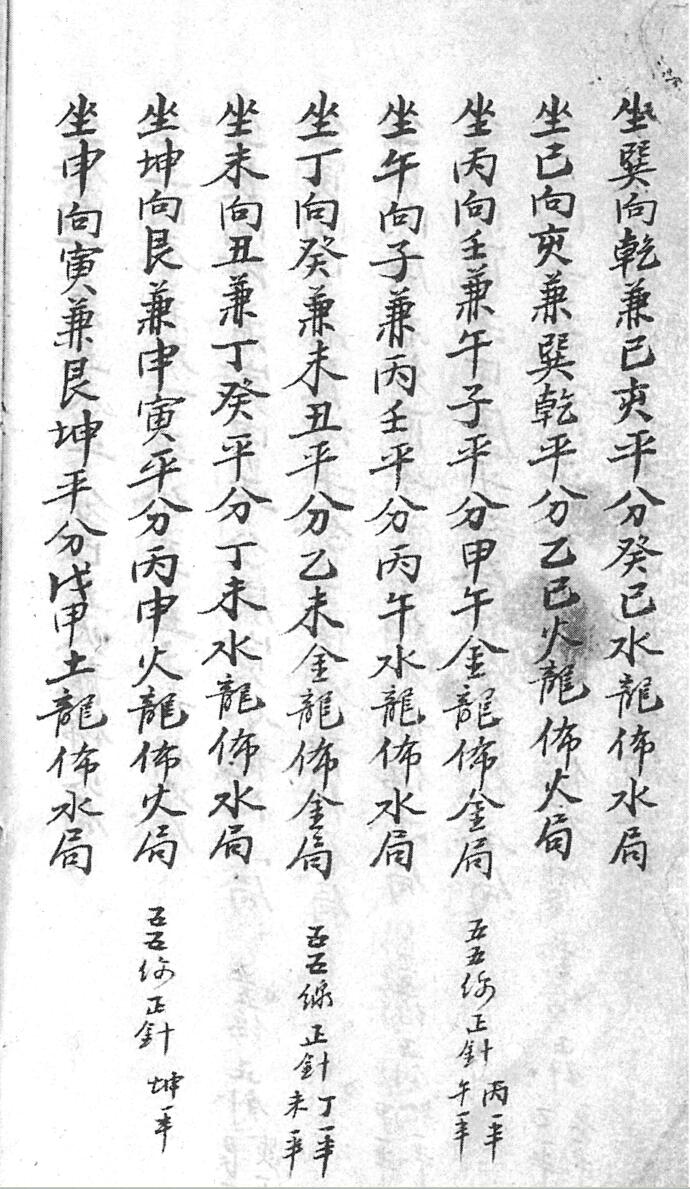 坐巽向乾兼巳亥平分癸巳水龍佈水局
坐巳向亥兼巽乾平分乙巳火龍佈火局
坐丙向壬兼午子平分甲午金龍佈金局 五五線正針 丙一半 午一半
坐午向子兼丙壬平分丙午水龍佈水局
坐丁向癸兼未丑平分乙未金龍佈金局 五五線正針 丁一半 未一半
坐未向丑兼丁癸平分丁未水龍佈水局
坐坤向艮兼申寅平分丙申火龍佈火局 五五線正針 坤一半
坐申向寅兼艮坤平分戊申土龍佈水局